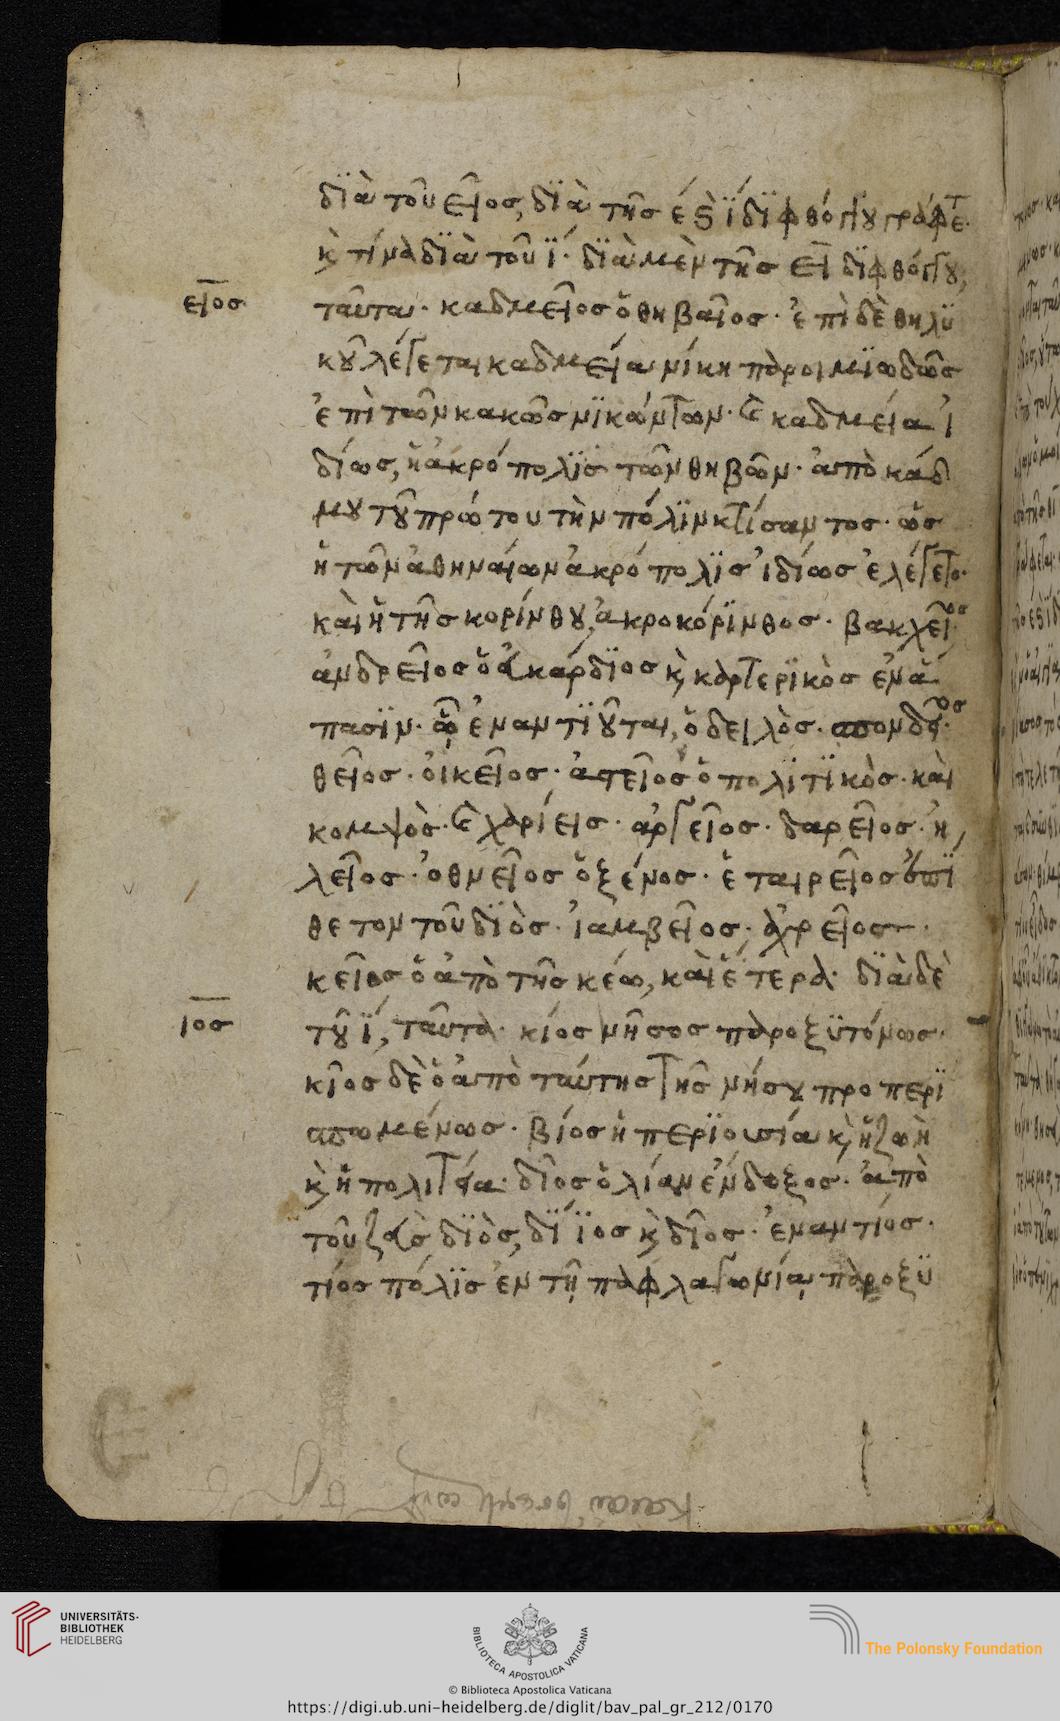 διὰ τοῦ εῖος, διὰ τῆς ε ϛ ϊ διφθόγγου γράφετ.
κ̀ τινὰ διὰ τοῦ ϊ· διὰ μὲν τῆς ει διφθόγγου,
ειος
ταῦτα· καδμεῖος ὁ θηβαῖος· ἐπὶ δὲ θηλυ
κοῦ λέγεται καδμεία νίκη παροιμιωδῶς
ἐπὶ τῶν κακῶς νικώντων· ϛ καδμεία ἰ
δίως, ἡ ἀκρόπολις τῶν θηβῶν· ἀπὸ κάδ
μου τοῦ πρώτου τὴν πόλιν κτίσαντος· ὡς
ἡ τῶν ἀθηναίων ἀκρόπολις ἰδίως ἐλέγετο·
καὶ ἡ τῆς κορίνθου, ἀκροκόρινθος· βακχεῖος
ἀνδρεῖος ὁ εὐκάρδιος κ̀ καρτερικὸς ἐν ἅ
πασιν· ᾧ ἐναντιοῦται, ὁ δειλὸς· σπονδεῖος·
θεῖος· οἰκεῖος· ἀστεῖος ὁ πολιτικὸς· καὶ
κομψὸς· ϛ χαρίεις· ἀργεῖος· δαρεῖος· ἠ
λεῖος· ὀθνεῖος ὁ ξένος· ἑταιρεῖος ἐπί
θετον τοῦ διὸς· ἰαμβεῖος· ἀχρεῖος·
κεῖος ὁ ἀπὸ τῆς κέω, καὶ ἕτερα· διὰ δὲ
ιος
τοῦ ϊ, ταῦτα· κίος νῆσος παροξυτόνως·
κῖος δὲ ὁ ἀπὸ ταύτης τῆς νήσου προπερι
σπωμένως· βίος ἡ περιουσία κ̀ ἡ ζωὴ
κ̀ ἡ πολιτεία· δῖος ὁ λίαν ἔνδοξος· ἀπὸ
τοῦ ζεὺς διὸς, δίϊος κ̀ δῖος· ἐναντίος·
τίος πόλις ἐν τῇ παφλαγωνίᾳ παροξυ
UNIVERSITÄTS-
BIBLIOTHEK
HEIDELBERG
BIBLIOTECA APOSTOLICA VATICANA
The Polonsky Foundation
© Biblioteca Apostolica Vaticana
https://digi.ub.uni-heidelberg.de/diglit/bav_pal_gr_212/0170